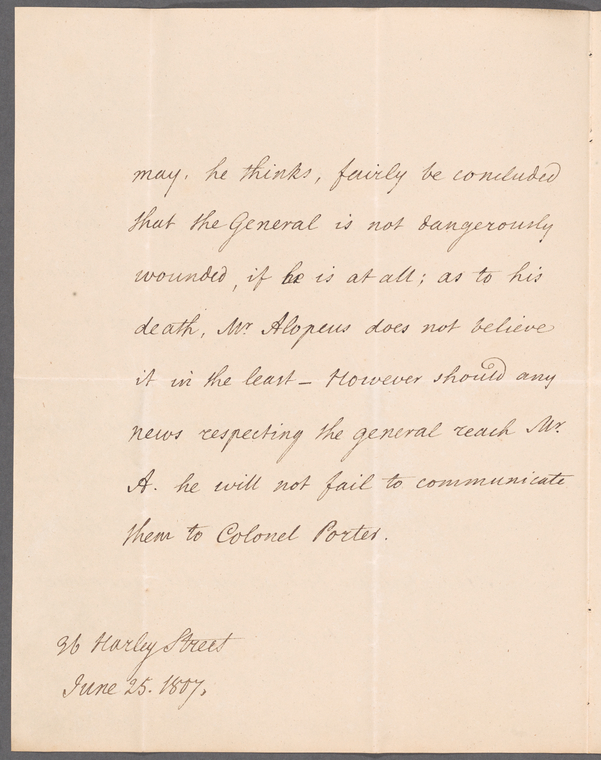 may, he thinks, fairly be concluded
that the General is not dangerously
wounded, if he is at all; as to his
death, Mr. Alopeus does not believe
it in the least – However should any
news respecting the general reach Mr.
A. he will not fail to communicate
them to Colonel Porter.
36 Harley Street
June 25. 1807.